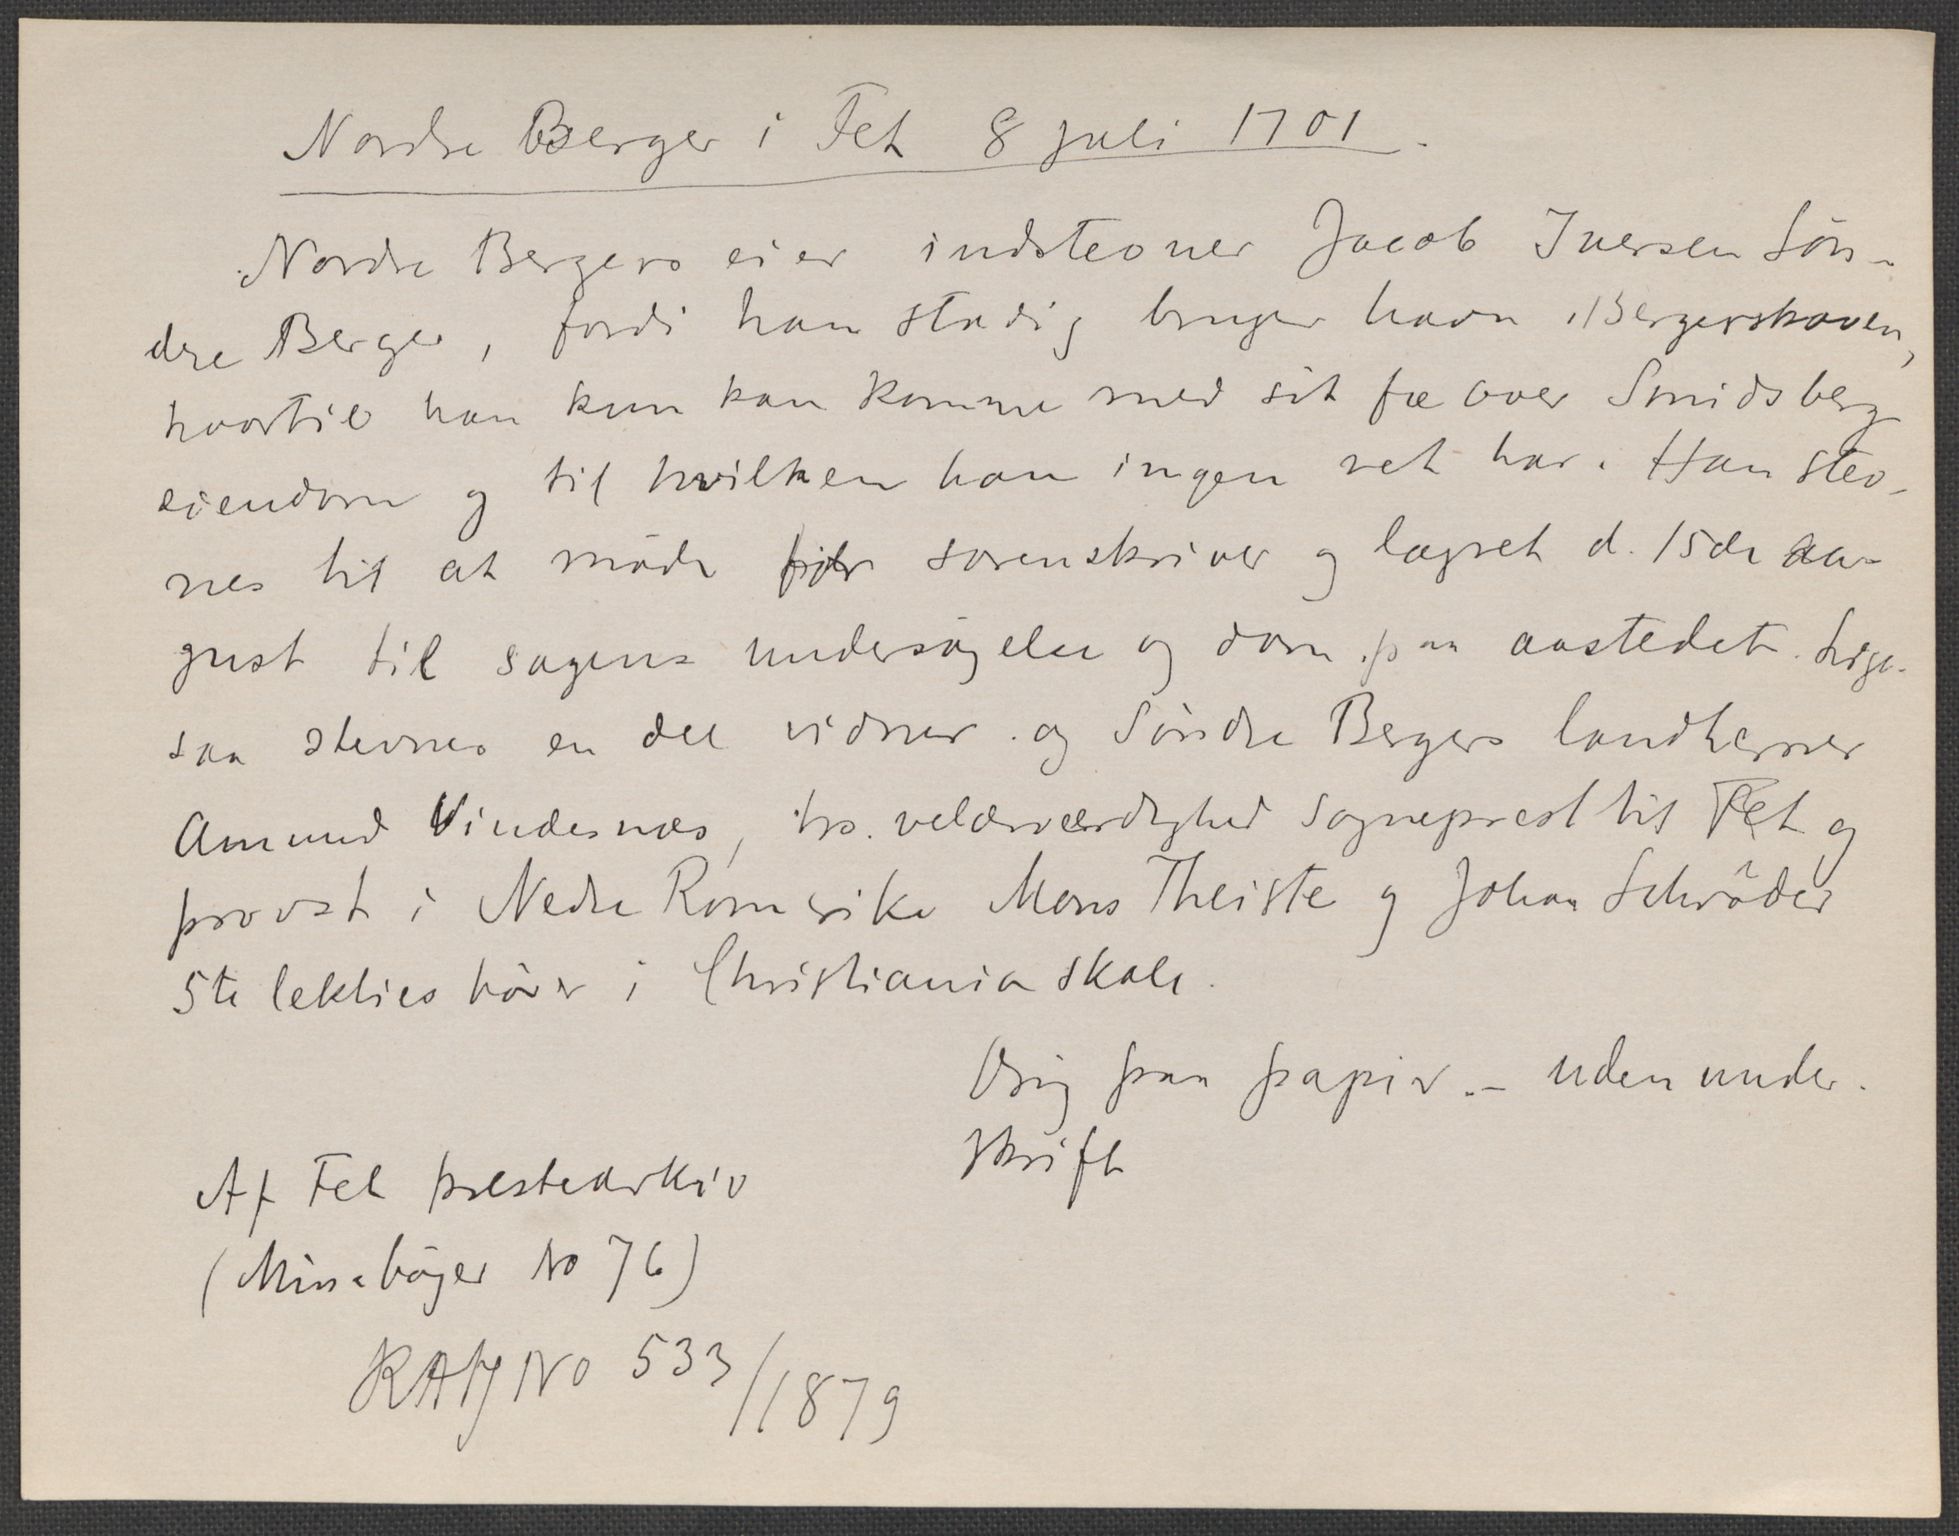 Nordre Berger i Fet 8 juli 1701.
Nordre Bergers eier indstevner Jacob Iversen Sön-
dre Berger, fordi han stadig bruger havn i Bergerskoven,
hvortil han kun kan komme med sit fæ over Smidsberg
eiendom og til hvilken han ingen ret har. Han stev-
nes til at möde för sorenskriver og lagret d. 15de au-
gust til sagens undersögelse og dom paa aastedet. Lige-
saa stevnes en del vidner og Söndre Bergers landherrer
Amund Vindesnæs, hs. velærværdighed sogneprest til Fet og
provst i Nedre Romerike Mons Theiste og Johan Schröder
5te lekties hörer i Christiania skole.
Orig paa papir. - uden under-
skrift
Af Fet prestearkiv
(Minebøger No 76)
RA No 533/1879